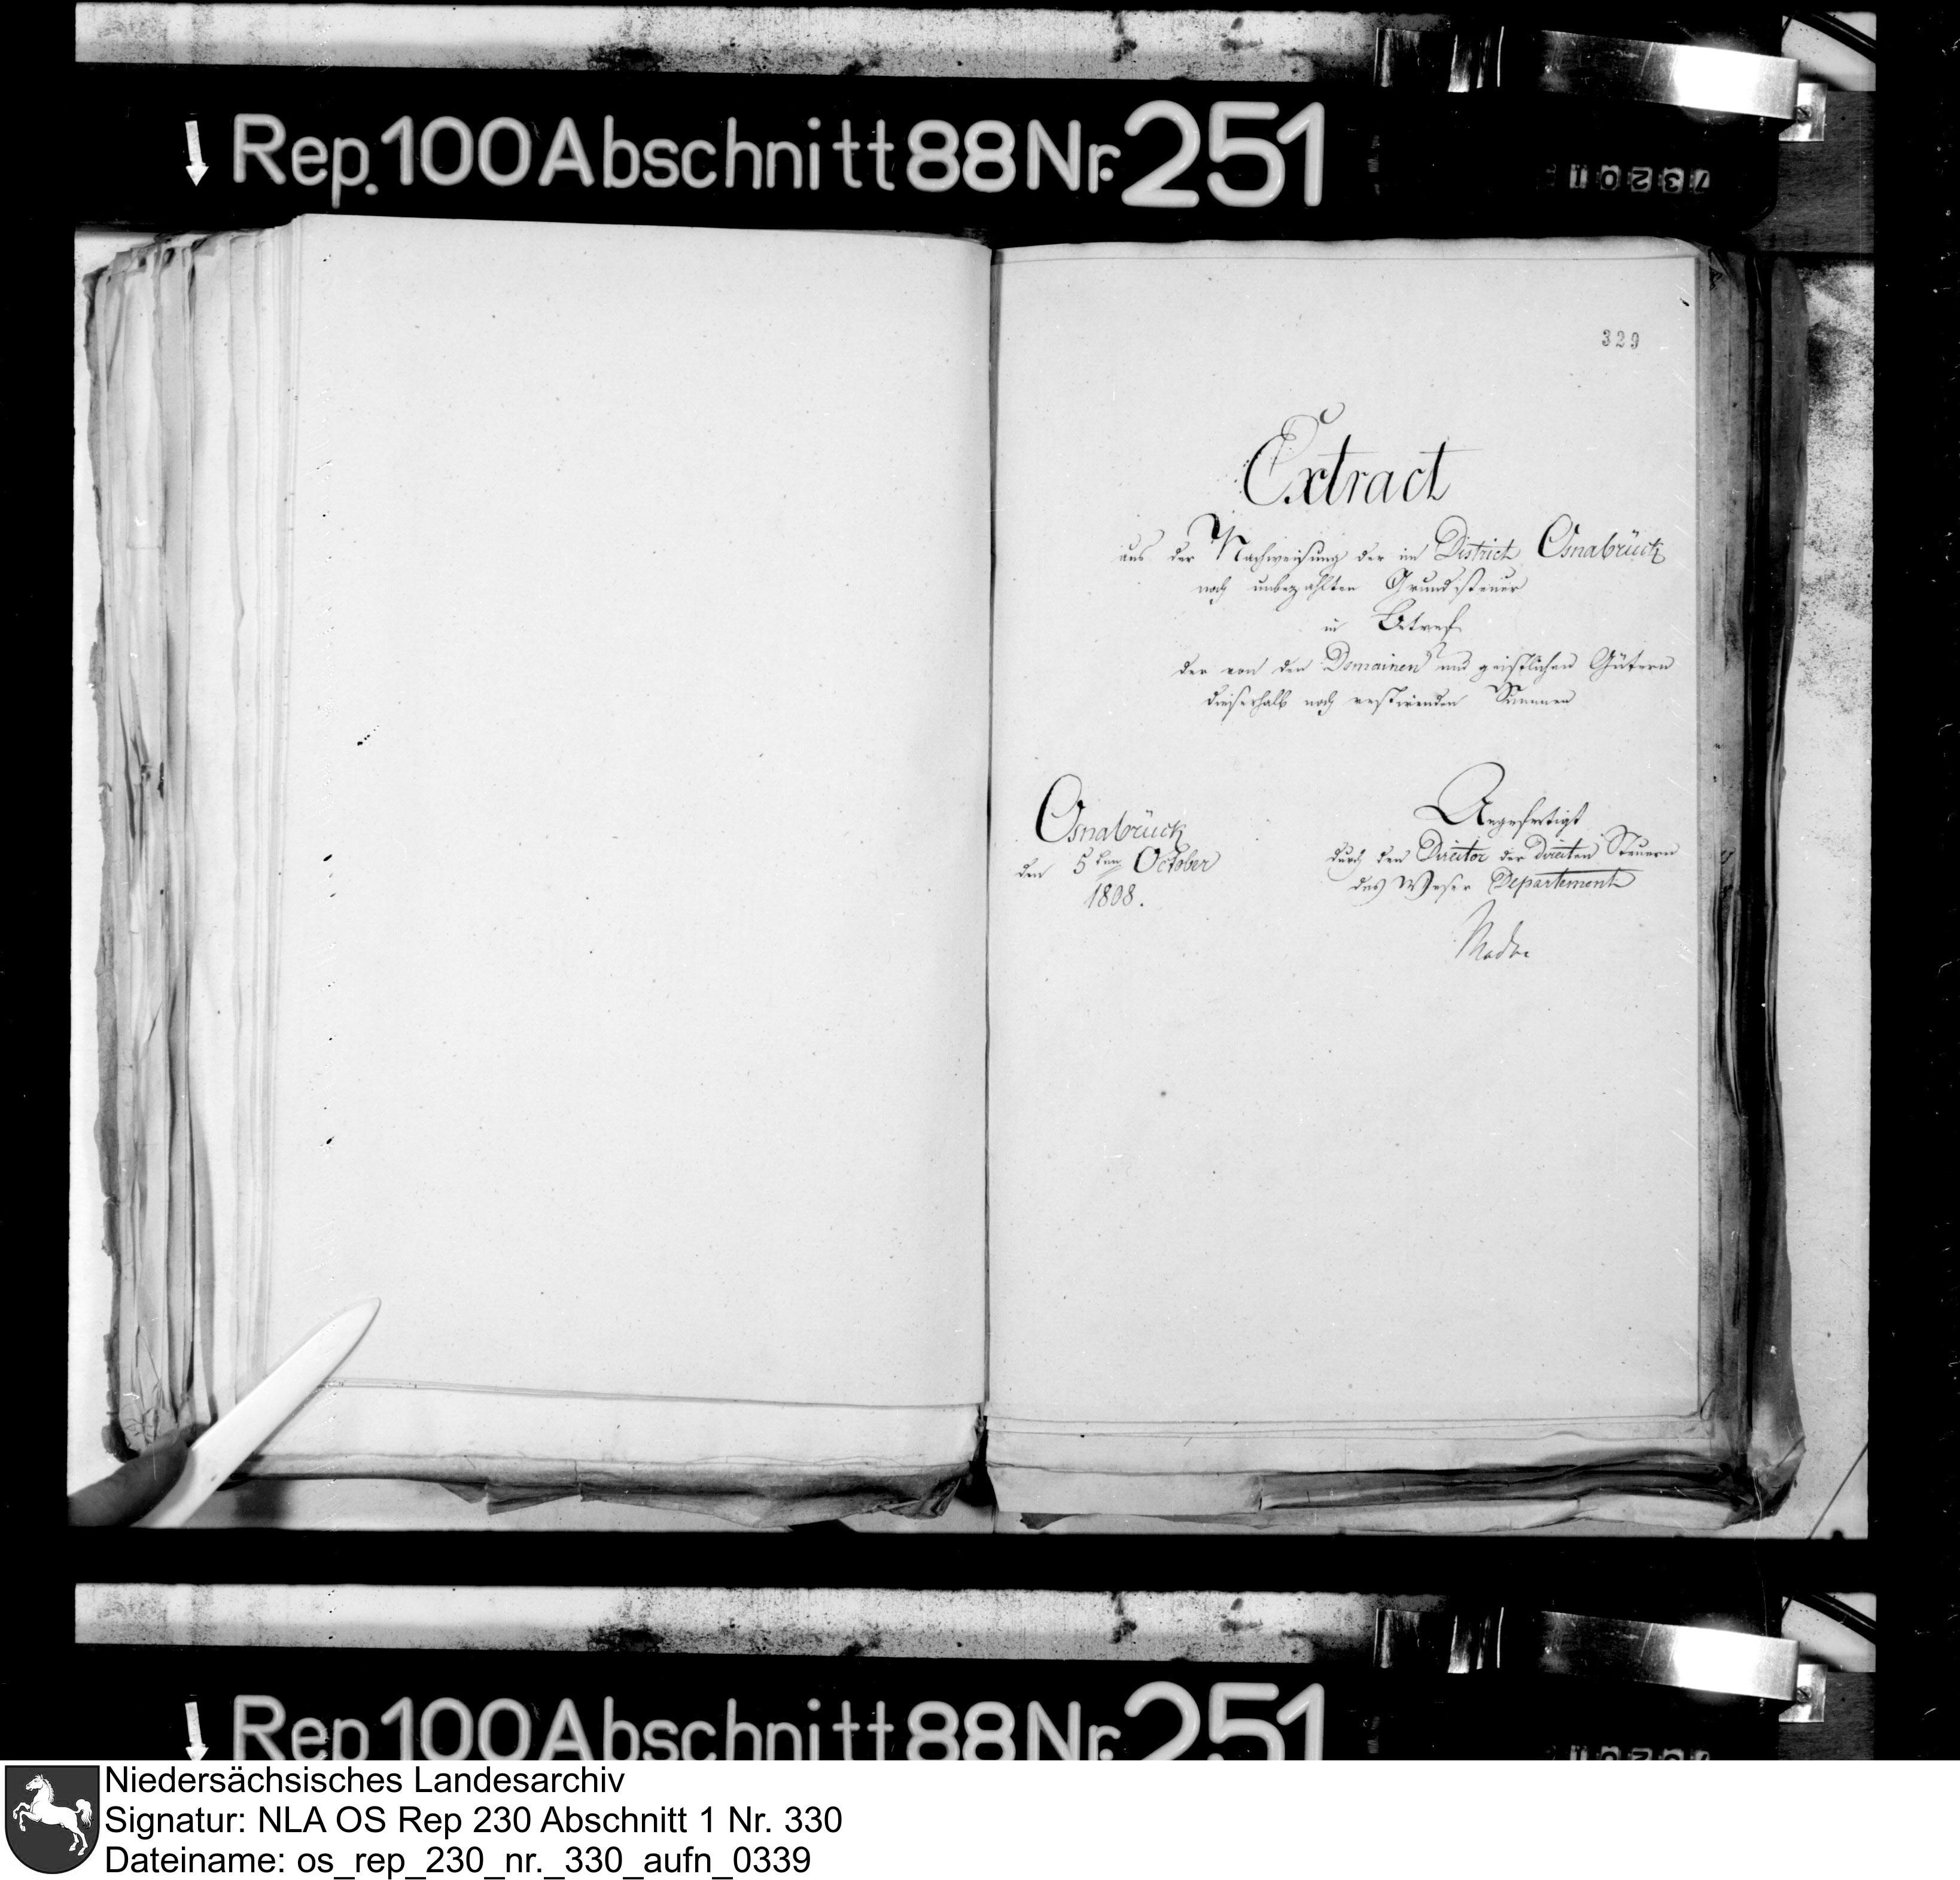 Rep. 100 Abschnitt 88 Nr. 251
73201
329
Extract
aus der Nachweisung der im District Osnabrück
noch unbezahlten Grundsteuer
in Betref
der von den Domainen und geistlichen Gütern
dieserhalb noch restirenden Summen
Osnabrück
den 5ten October
1808.
Angefertigt
durch den Director der directen Steuern
des Weser Departements
Rep 100 Abschnitt 88 Nr. 251
Niedersächsisches Landesarchiv
Signatur: NLA OS Rep 230 Abschnitt 1 Nr. 330
Dateiname: os_rep_230_nr._330_aufn_0339